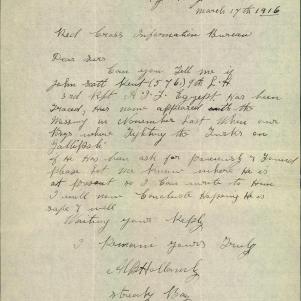 March 17th 1916
Red Cross Information Bureau
Dear Sirs
Can you Tell me if
John Scott Kent (576) 9th L.H
3rd Reft. A.I.F. Egypt Has been
Traced, His name appeared with the
Missing in November Last When our
Boys where Fighting the Turks on
Gallipoli
if He Has been ask for & Found
Please Let me know where He is
at present so I can write to Him
I will now Conclude Hoping He is
safe & well
Waiting your Reply
I Remain Yours Truly
Streaky Bay